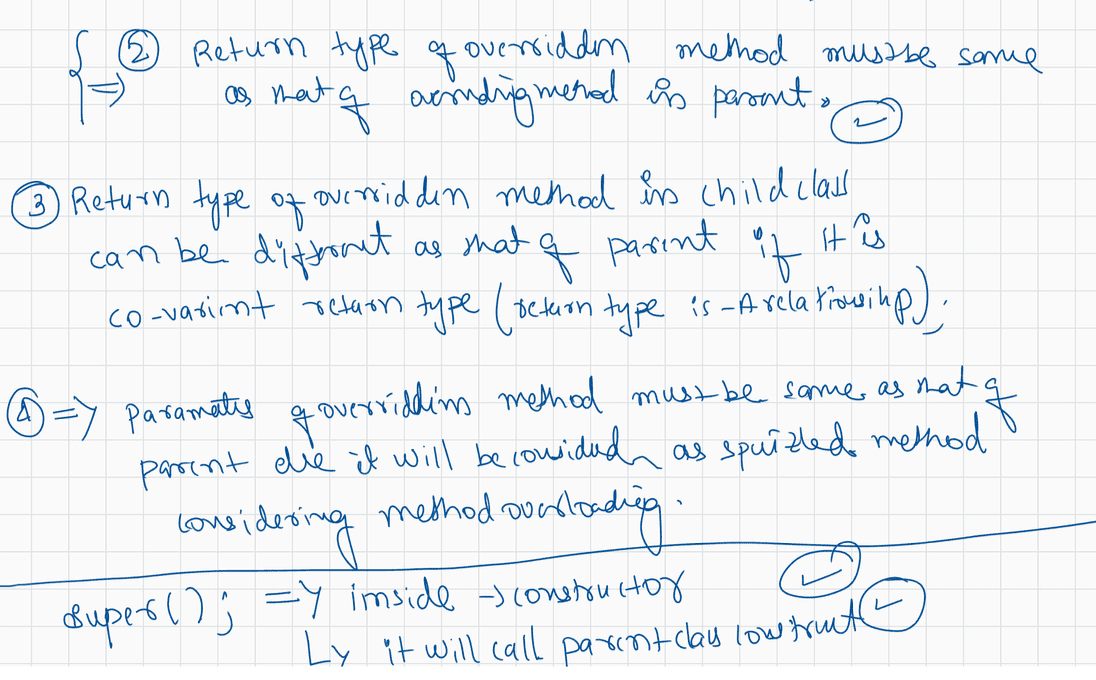 {=> ② Return type of overridden method must be same
as that of overriding method in parent.
③ Return type of overridden method in child class
can be different as that of parent if it is
co-varient return type (return type is-A relationship).
④ => Parameters of overriding method must be same as that of
parent else it will be considered as method
considering method overloading.
super(); => inside -> constructor
↳ it will call parent class construct